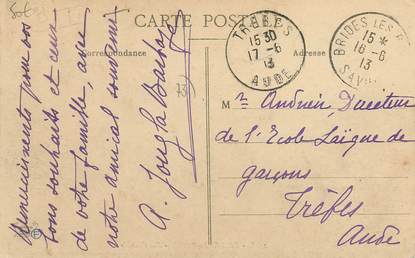 80c
CARTE POSTALE
Correspondance
Adresse
Remerciements pour vos
bons souhaits et ceux
de votre famille, avec
notre amical souvenir
A. Jougla Barbaza
TRÈBES
15 30
17-6
13
AUDE
BRIDES LES B
15 *
16-6
13
SAV
13
Mr Andrieu, Directeur
de l'Ecole Laïque de
garçons
Trèbes
Aude